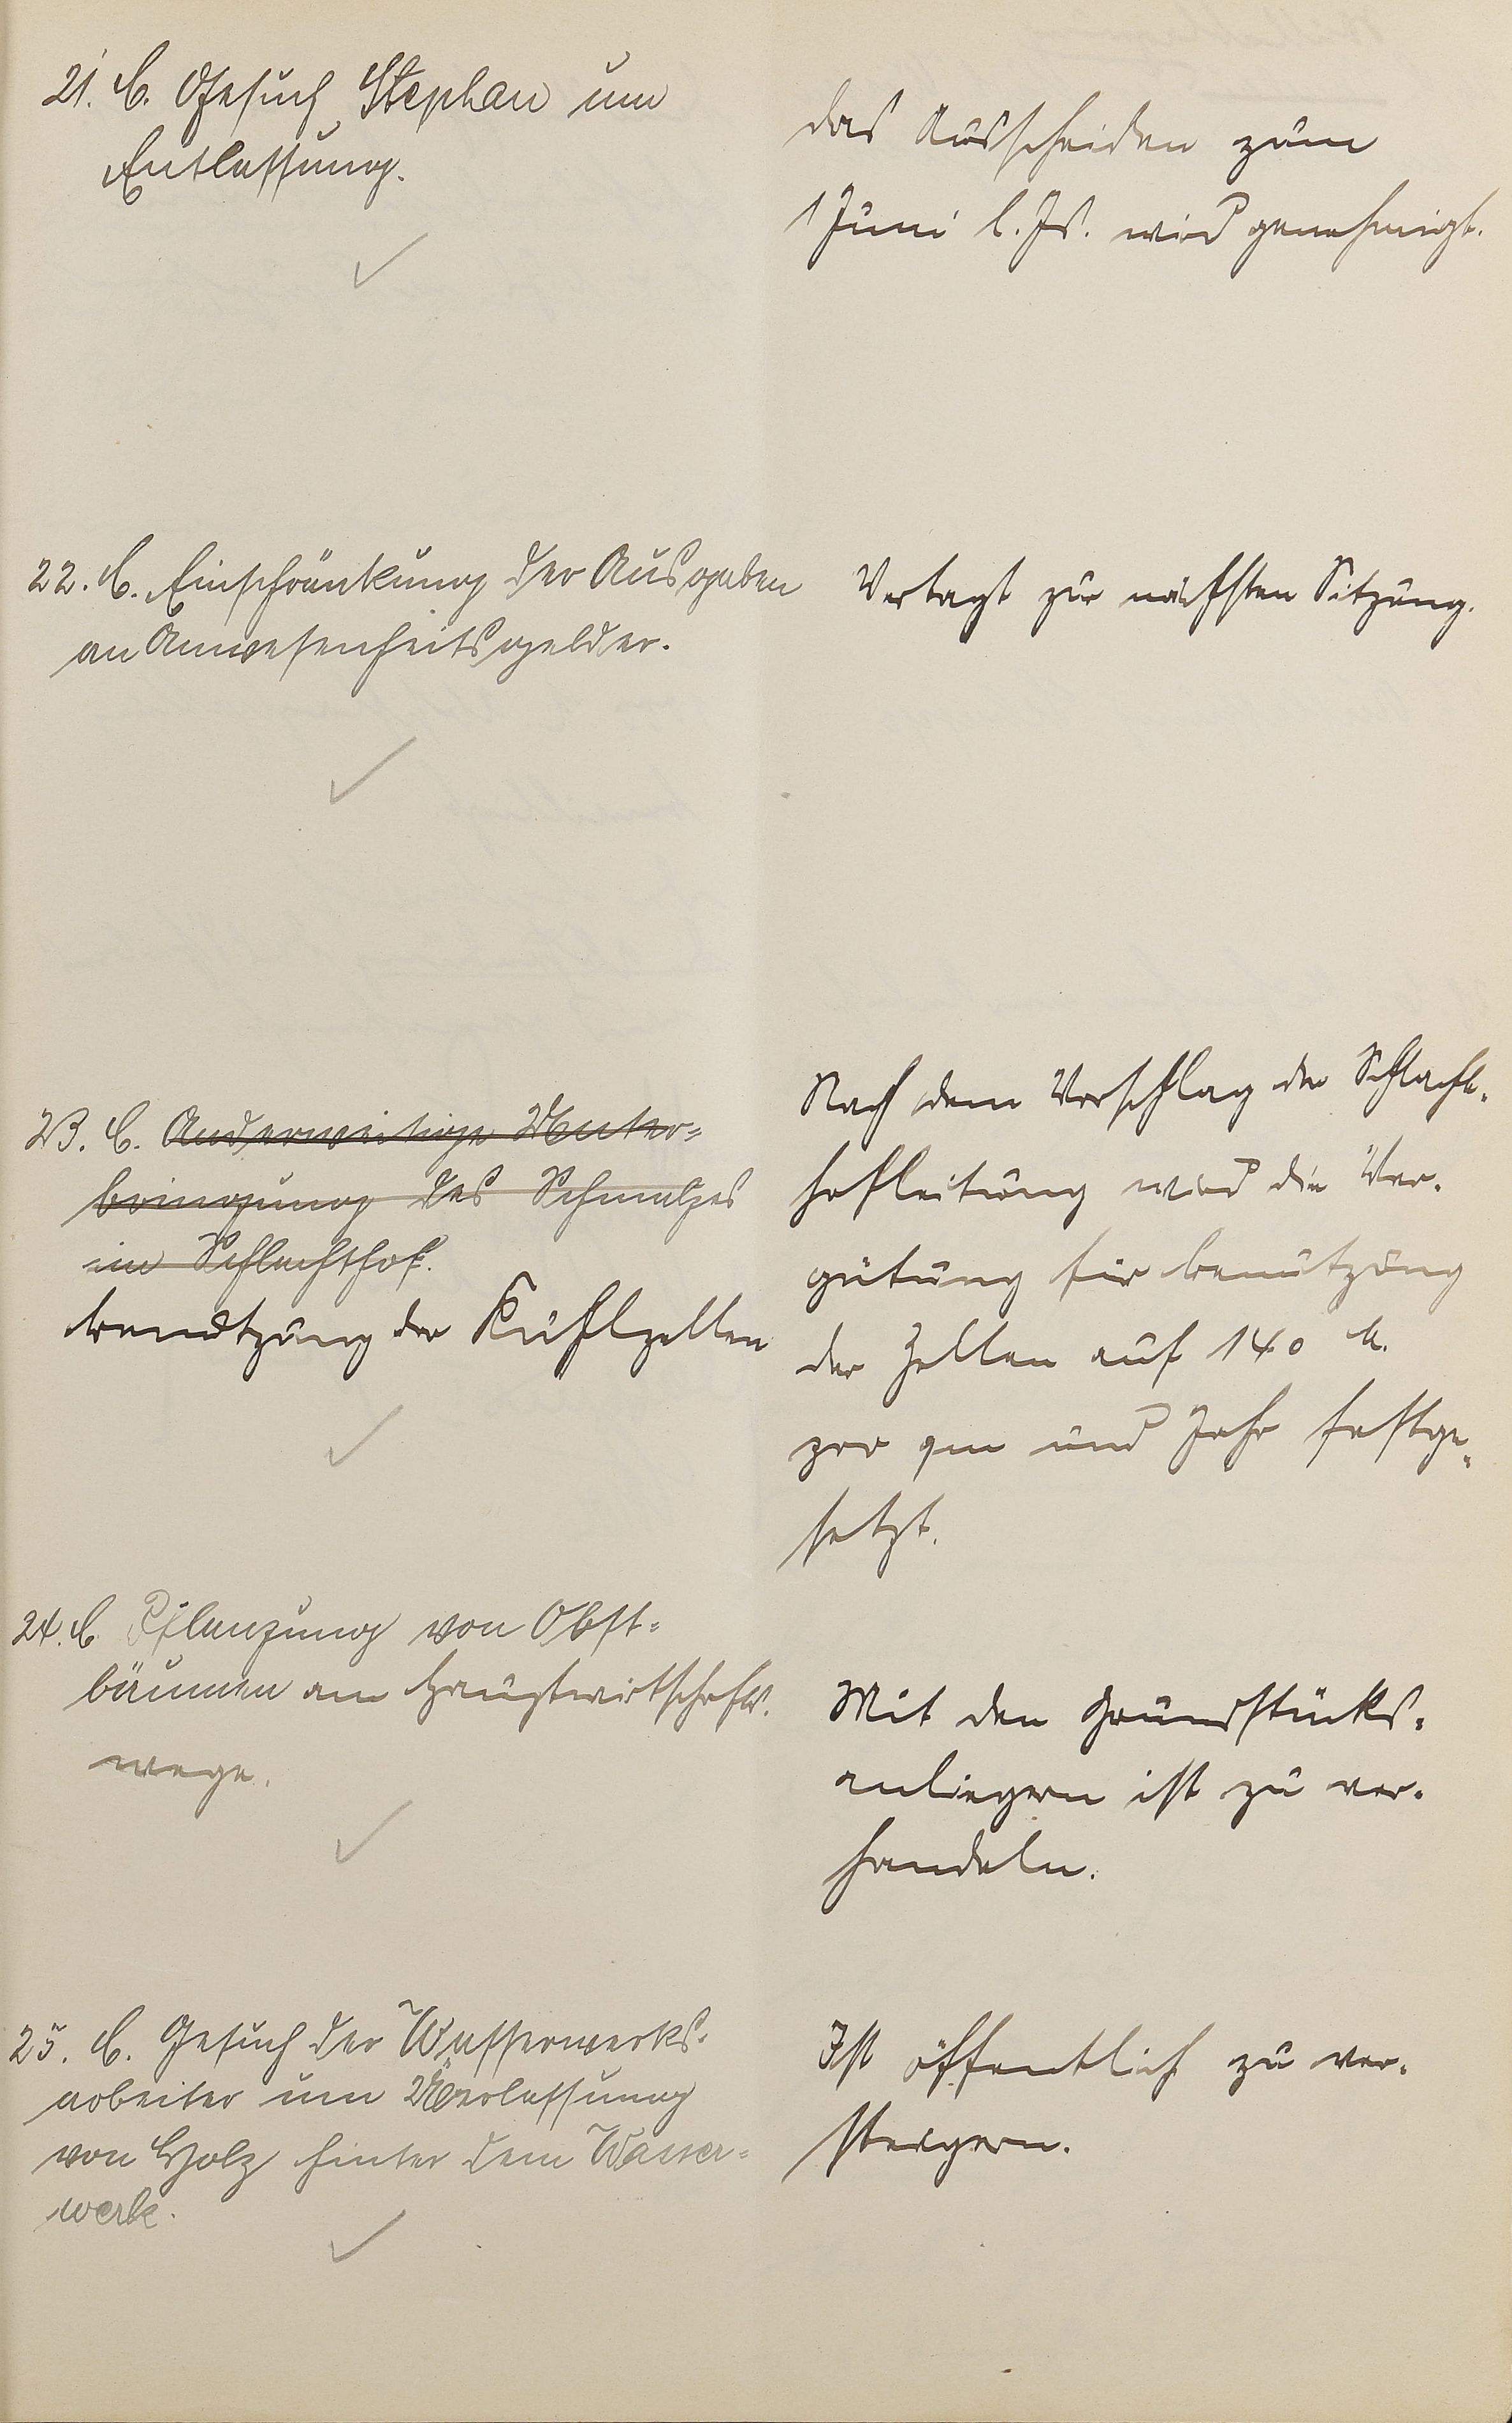 21. C. Gesuch Stephan um
Entlassung.
das Ausscheiden zum
1 Juni l. Js. wird genehmigt.
22. C. Einschränkung der Ausgaben
an Anwesenheitsgelder.
Vertagt zur nächsten Sitzung.
23. C. Anderweitige Unter=
bringung des Schmalzes
im Schlachthof.
benützung der Kühlzellen
Nach dem Vorschlag der Schlacht-
hofleitung wird die Ver-
gütung für benützung
der Zellen auf 140 M.
pro qm und Jahr festge-
setzt.
24. C Pflanzung von Obst=
bäumen am Hauptwirtschafts-
wege.
Mit den Grundstücks-
anliegern ist zu ver-
handeln.
25. C. Gesuch der Wasserwerks-
arbeiter um Überlassung
von Holz hinter dem Wasser=
werk.
Ist öffentlich zu ver-
steigern.